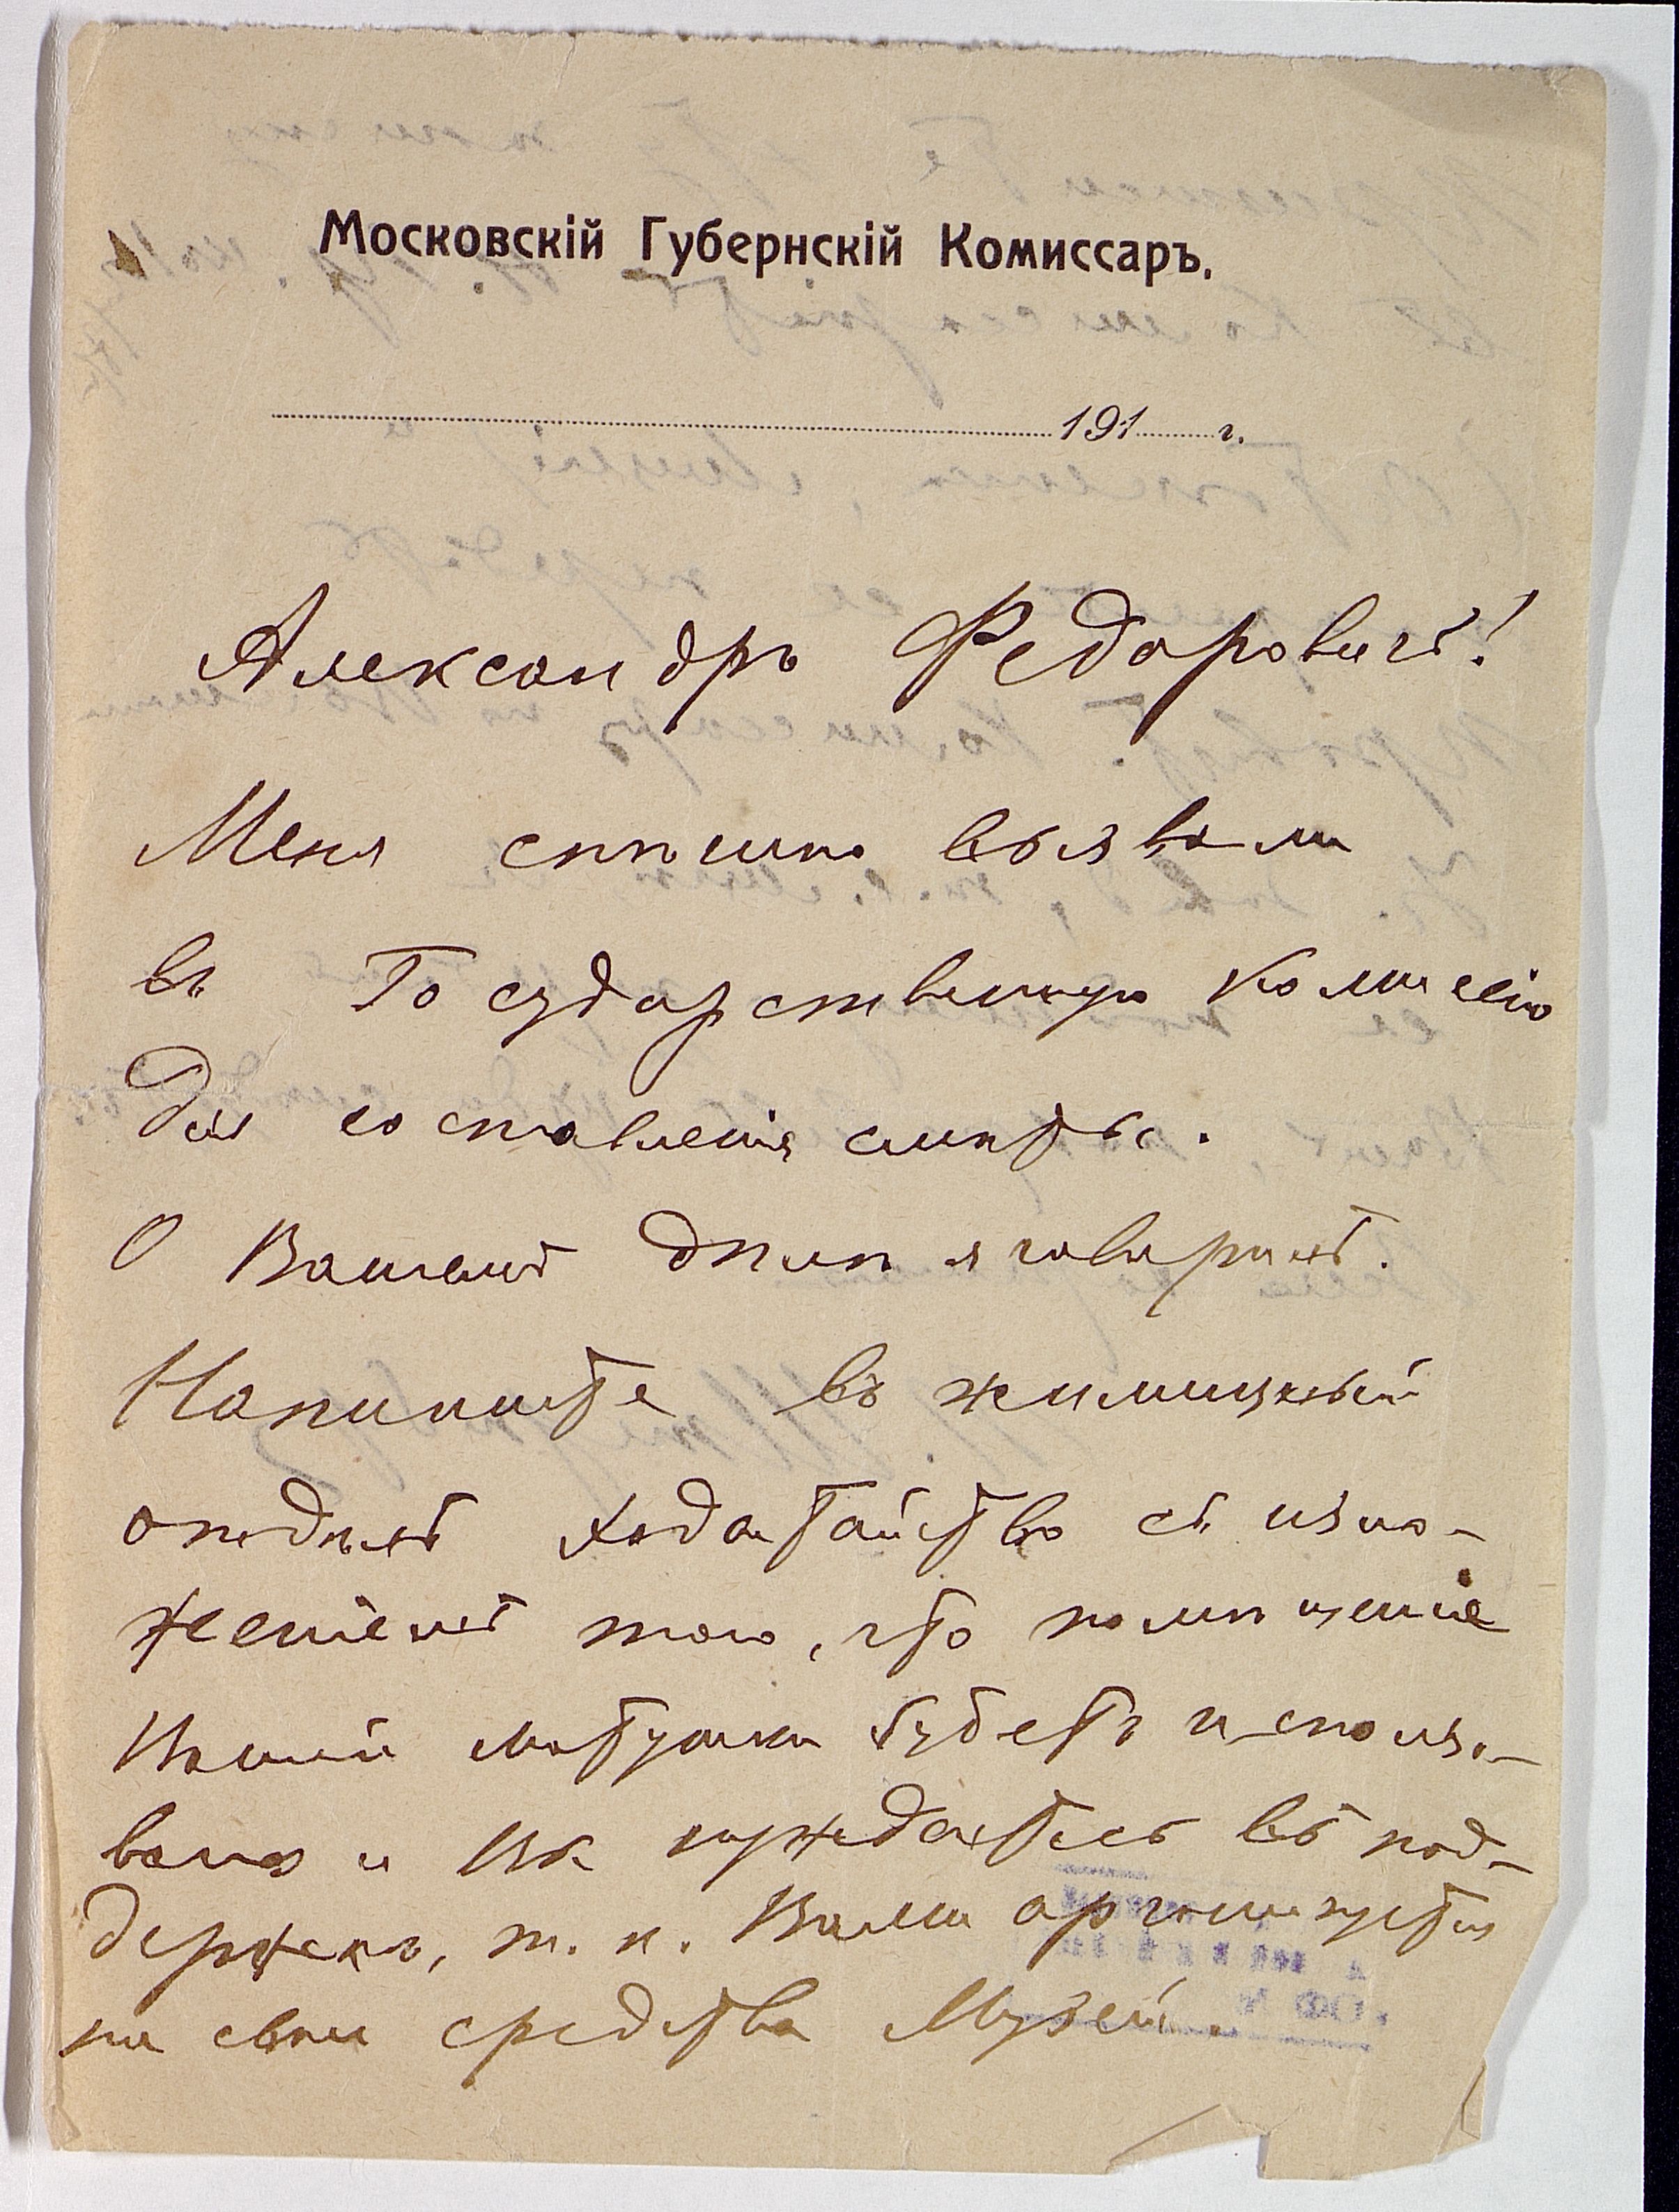 Московскій Губернскій Комиссаръ.
191 г.
Александръ Федоровичъ!
Меня спѣшно вызвали
въ Государственную комиссію
для составленія смѣты.
О Вашемъ дѣлѣ я говорилъ.
Напишите въ жилищный
отдѣлъ ходатайство съ изло-
женіемъ того, что помѣщеніе
Вашей матушки будетъ использо-
вано и Вы нуждаетесь въ под-
держкѣ, т. к. Вами организуется
на свои средства Музей.